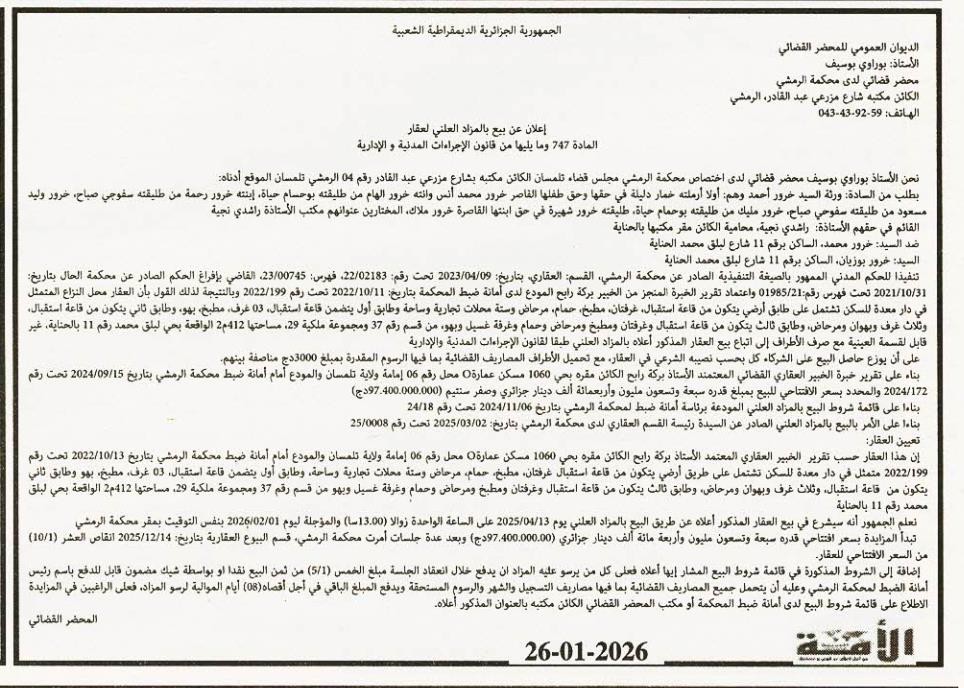 الجمهورية الجزائرية الديمقراطية الشعبية
الديوان العمومي للمحضر القضائي
الأستاذ: بوراوي بوسيف
محضر قضائي لدى محكمة الرمشي
الكائن مكتبه شارع مزرعي عبد القادر، الرمشي
الهاتف: 59-92-43-043
إعلان عن بيع بالمزاد العلني لعقار
المادة 747 وما يليها من قانون الإجراءات المدنية و الإدارية
نحن الأستاذ بوراوي بوسيف محضر قضائي لدى اختصاص محكمة الرمشي مجلس قضاء تلمسان الكائن مكتبه بشارع مزرعي عبد القادر رقم 04 الرمشي تلمسان الموقع أدناه:
بطلب من السادة: ورثة السيد خرور أحمد وهم: أولا أرملته خمار دليلة في حقها وحق طفلها القاصر خرور محمد أنس وانته خرور الهام من طليقته بوحسام حياة، إبنته خرور رحمة من طليقته سفوجي صباح، خرور وليد
مسعود من طليقته سفوحي صباح، خرور مليك من طليقته بوحمام حياة، طليقته خرور شهيرة في حق ابنتها القاصرة خرور ملاك، المختارين عنوانهم مكتب الأستاذة راشدي نجية
القائم في حقهم الأستاذة: راشدي نجية، محامية الكائن مقر مكتبها بالحناية
ضد السيد: خرور محمد، الساكن برقم 11 شارع لبلق محمد الحناية
السيد: خرور بوزيان، الساكن برقم 11 شارع لبلق محمد الحناية
تنفيذا للحكم المدني الممهور بالصيغة التنفيذية الصادر عن محكمة الرمشي، القسم: العقاري، بتاريخ: 2023/04/09 تحت رقم: 22/02183، فهرس: 23/00745، القاضي بإفراغ الحكم الصادر عن محكمة الحال بتاريخ:
2021/10/31 تحت فهرس رقم:01985/21 واعتماد تقرير الخبرة المنجز من الخبير بركة رابح المودع لدى أمانة ضبط المحكمة بتاريخ: 2022/10/11 تحت رقم 2022/199 وبالنتيجة لذلك القول بأن العقار محل النزاع المتمثل
في دار معدة للسكن تشتمل على طابق أرضي يتكون من قاعة استقبال، غرفتان، مطبخ، حمام، مرحاض وستة محلات تجارية وساحة وطابق أول يتضمن قاعة استقبال، 03 غرف، مطبخ، بهو، وطابق ثاني يتكون من قاعة استقبال،
وثلاث غرف وبهوان ومرحاض، وطابق ثالث يتكون من قاعة استقبال وغرفتان ومطبخ ومرحاض وحمام وغرفة غسيل وبهو، من قسم رقم 37 ومجموعة ملكية 29، مساحتها 412م2 الواقعة بحي لبلق محمد رقم 11 بالحناية، غير
قابل لقسمة العينية مع صرف الأطراف إلى اتباع بيع العقار المذكور أعلاه بالمزاد العلني طبقا لقانون الإجراءات المدنية والإدارية
على أن يوزع حاصل البيع على الشركاء كل بحسب نصيبه الشرعي في العقار، مع تحميل الأطراف المصاريف القضائية بما فيها الرسوم المقدرة بمبلغ 3000دج مناصفة بينهم.
بناء على تقرير خبرة الخبير العقاري القضائي المعتمد الأستاذ بركة رابح الكائن مقره بحي 1060 مسكن عمارةO محل رقم 06 إمامة ولاية تلمسان والمودع أمام أمانة ضبط محكمة الرمشي بتاريخ 2024/09/15 تحت رقم
2024/172 والمحدد بسعر الافتتاحي للبيع بمبلغ قدره سبعة وتسعون مليون وأربعمائة ألف دينار جزائري وصفر سنتيم (97.400.000.000دج)
بناءا على قائمة شروط البيع بالمزاد العلني المودعة برئاسة أمانة ضبط لمحكمة الرمشي بتاريخ 2024/11/06 تحت رقم 24/18
بناءا على الأمر بالبيع بالمزاد العلني الصادر عن السيدة رئيسة القسم العقاري لدى محكمة الرمشي بتاريخ: 2025/03/02 تحت رقم 25/0008
تعيين العقار:
إن هذا العقار حسب تقرير الخبير العقاري المعتمد الأستاذ بركة رابح الكائن مقره بحي 1060 مسكن عمارةO محل رقم 06 إمامة ولاية تلمسان والمودع أمام أمانة ضبط محكمة الرمشي بتاريخ 2022/10/13 تحت رقم
2022/199 متمثل في دار معدة للسكن تشتمل على طريق أرضي يتكون من قاعة استقبال غرفتان، مطبخ، حمام، مرحاض وستة محلات تجارية وساحة، وطابق أول يتضمن قاعة استقبال، 03 غرف، مطبخ، بهو وطابق ثاني
يتكون من قاعة استقبال، وثلاث غرف وبهوان ومرحاض، وطابق ثالث يتكون من قاعة استقبال وغرفتان ومطبخ ومرحاض وحمام وغرفة غسيل وبهو من قسم رقم 37 ومجموعة ملكية 29، مساحتها 412م2 الواقعة بحي لبلق
محمد رقم 11 بالحناية
نعلم الجمهور أنه سيشرع في بيع العقار المذكور أعلاه عن طريق البيع بالمزاد العلني يوم 2025/04/13 على الساعة الواحدة زوالا (13.00سا) والمؤجلة ليوم 2026/02/01 بنفس التوقيت بمقر محكمة الرمشي
تبدأ المزايدة بسعر افتتاحي قدره سبعة وتسعون مليون وأربعة مائة ألف دينار جزائري (97.400.00.00دج) وبعد عدة جلسات أمرت محكمة الرمشي، قسم البيوع العقارية بتاريخ: 2025/12/14 انقاص العشر (10/1)
من السعر الافتتاحي للعقار.
إضافة إلى الشروط المذكورة في قائمة شروط البيع المشار إيها أعلاه فعلى كل من يرسو عليه المزاد ان يدفع خلال انعقاد الجلسة مبلغ الخمس (5/1) من ثمن البيع نقدا او بواسطة شيك مضمون قابل للدفع باسم رئيس
أمانة الضبط لمحكمة الرمشي وعليه أن يتحمل جميع المصاريف القضائية بما فيها مصاريف التسجيل والشهر والرسوم المستحقة ويدفع المبلغ الباقي في أجل أقصاه(08) أيام الموالية لرسو المزاد، فعلى الراغبين في المزايدة
الاطلاع على قائمة شروط البيع لدى أمانة ضبط المحكمة أو مكتب المحضر القضائي الكائن مكتبه بالعنوان المذكور أعلاه.
المحضر القضائي
الأمة
26-01-2026